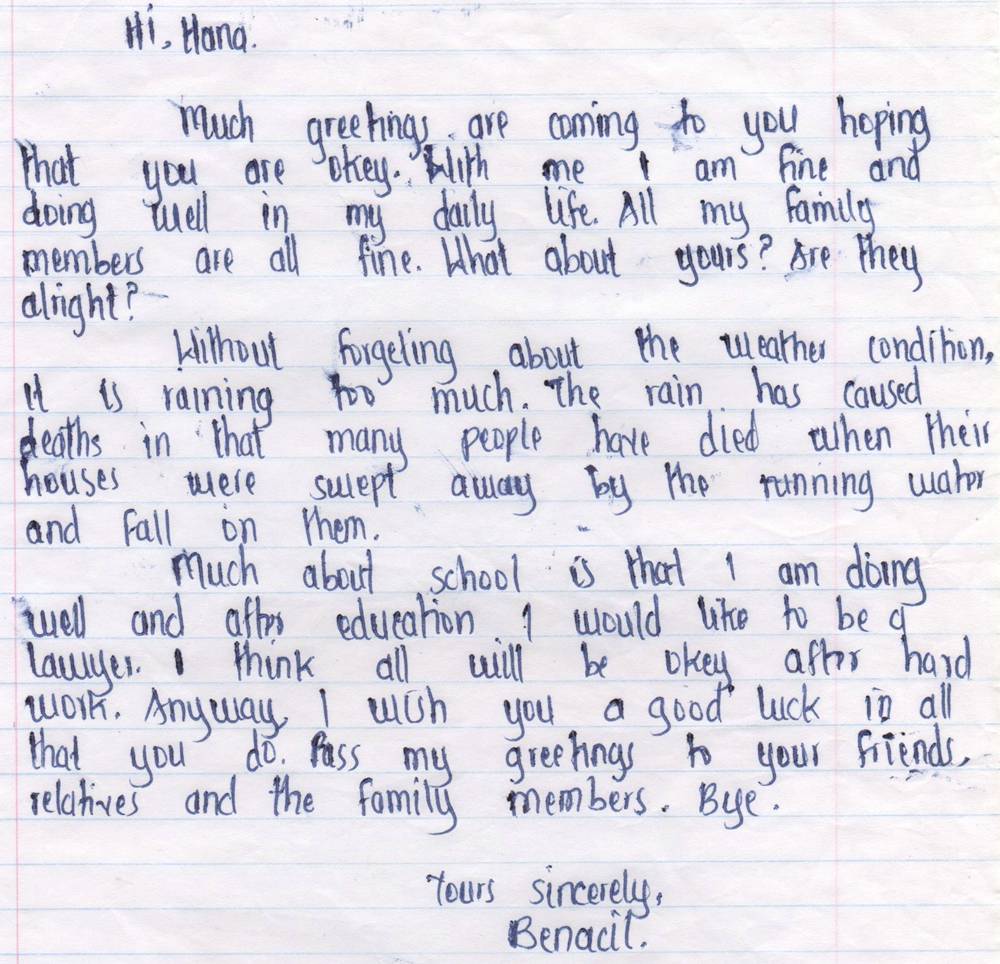 Hi, Hana.
Much greetings are coming to you hoping
that you are okey. With me I am fine and
doing well in my daily life. All my family
members are all fine. What about yours? Are they
alright?
Without forgeting about the weather condition,
it is raining too much. The rain has caused
deaths in that many people have died when their
houses were swept away by the running water
and fall on them.
Much about school is that I am doing
well and after education I would like to be a
lawyer. I think all will be okey after hard
work. Anyway, I wish you a good luck in all
that you do. Pass my greetings to your friends,
relatives and the family members. Bye.
Yours sincerely,
Benacil.